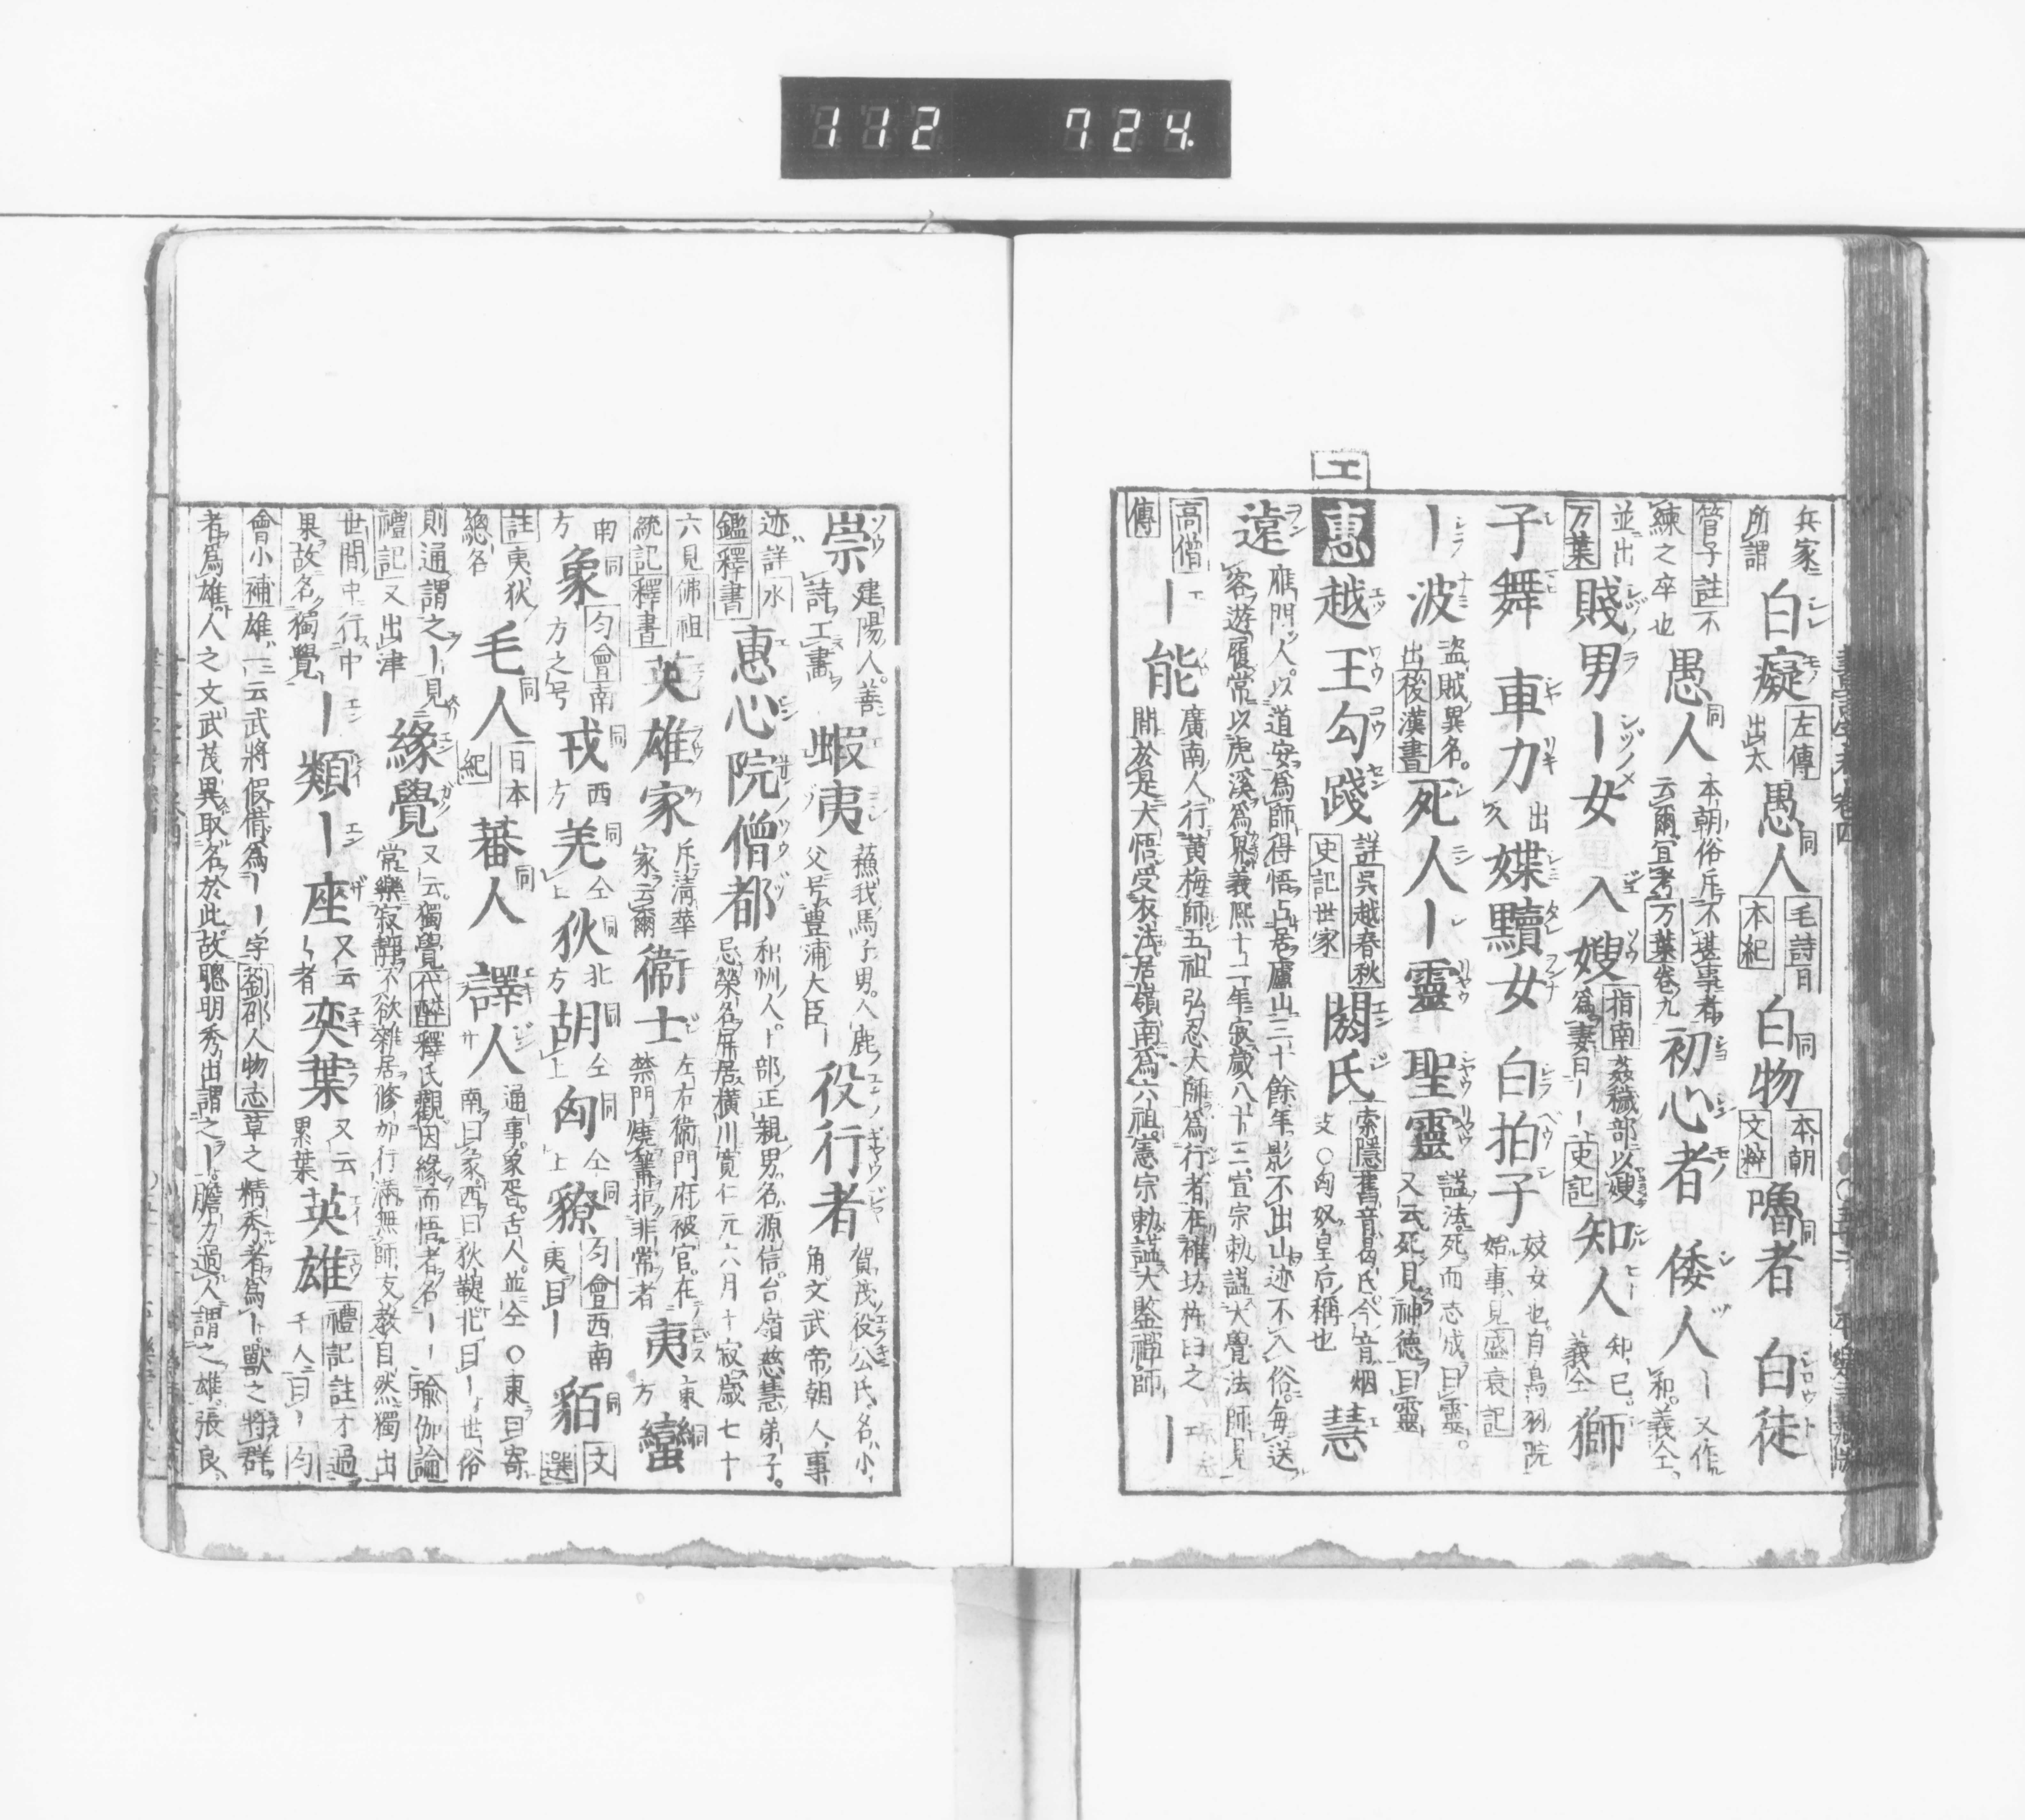 112 724
兵家所謂白癡左傳出太愚人同毛詩日本紀白物同本朝文粹嚕者同白徒
管子註不練之卒也愚人同本朝俗斥不堪事者云爾宜考万葉卷九初心者倭人ー又作和義仝
並出万葉賤男ー女入嫂指南姦穢部以嫂為妻曰ーー史記知人知己義仝獅
子舞車力出久媟黷女白拍子妓女也自鳥羽院始事見盛衰記
ー波盗賊異名出後漢書死人ー靈聖靈謚法死而志成曰靈又云死見神德曰靈
エ
惠越王勾踐詳吳越春秋史記世家閼氏索隱舊音曷氏今音烟支○匈奴皇后稱也慧
遠鴈門人以道安為師得悟占居廬山三十餘年影不出山迹不入俗每送客遊履常以虎溪為界義熙十二年寂歲八十三宣宗勅謚大覺法師見
高僧傳ー能廣南人行黄梅師五祖弘忍大師為行者在碓坊杵臼之間於是大悟受衣法居嶺南為六祖憲宗勅謚大鑒禪師ー
崇建陽人善詩工畫蝦夷蘓我馬子男入鹿父号豊浦大臣ー役行者賀茂役公氏名小角文武帝朝人事
迹詳水鑑釋書惠心院僧都和州人卜部正親男名源信台嶺慈慧弟子忌榮名屏居橫川寛仁元六月十寂歲七十
六見佛祖統記釋書英雄家斥淸華家云爾衛士左右衛門府被官在禁門燒篝拒非常者夷東方蠻同
南方象同匀會南方之号戎同西方羌同仝上狄同北方胡同仝上匈同仝上獠同匀會西南夷曰ー貊同文選
註夷狄總各毛人同日本紀蕃人同譯人通事象胥舌人並仝○東曰寄南曰象西曰狄鞮北曰ー世俗
則通謂之ー見禮記又出津緣覺又云獨覺代醉釋氏觀因緣而悟者名ーー瑜伽論常樂寂靜不欲雜居修加行滿無師友教自然獨出
世間中行中果故名獨覺ー類ー座又云ー者奕葉又云累葉英雄禮記註才過千人曰ー匀
會小補雄一云武將假借為ーー字劉邵人物志草之精秀者為ー獸之將群
者為雄人之文武茂異取名於此故聰明秀出謂之ー膽力過人謂之雄張良